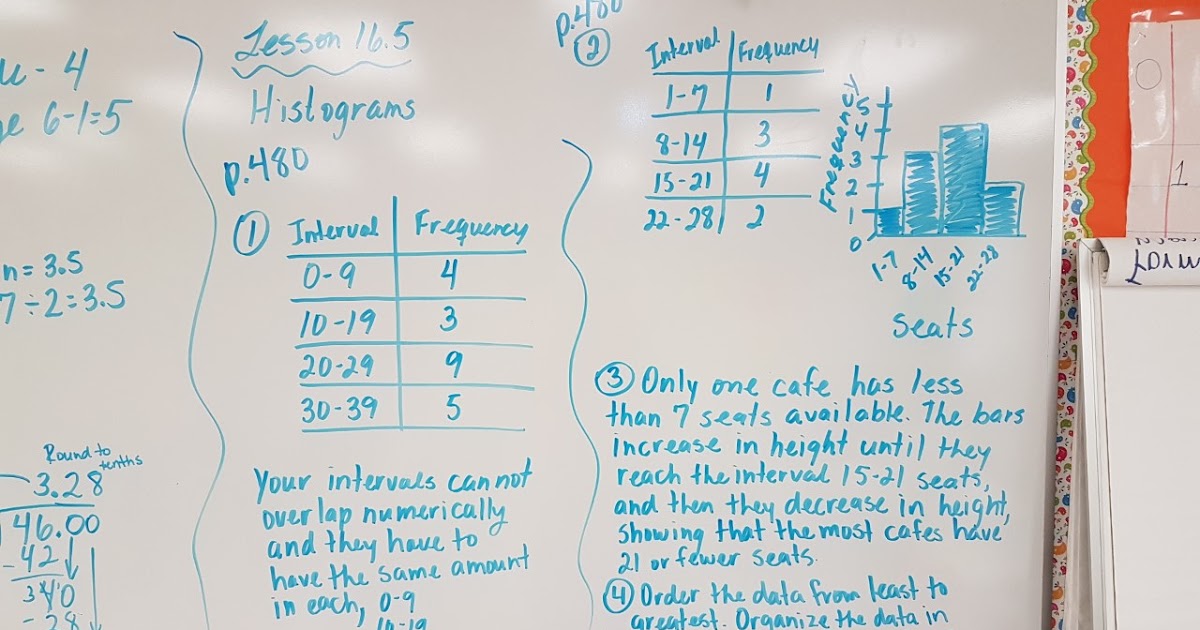 - 4
6-1=5
n = 3.5
7 ÷ 2 = 3.5
Round to
tenths
3.28
46.00
- 42
40
- 28
Lesson 16.5
Histograms
p.480
① Interval Frequency
0-9 4
10-19 3
20-29 9
30-39 5
Your intervals cannot
overlap numerically
and they have to
have the same amount
in each, 0-9
10-19
p.480
② Interval Frequency
1-7 1
8-14 3
15-21 4
22-28 2
Frequency
5
4
3
2
1
0
1-7 8-14 15-21 22-28
seats
③ Only one cafe has less
than 7 seats available. The bars
increase in height until they
reach the interval 15-21 seats,
and then they decrease in height,
showing that the most cafes have
21 or fewer seats.
④ Order the data from least to
greatest. Organize the data in
1